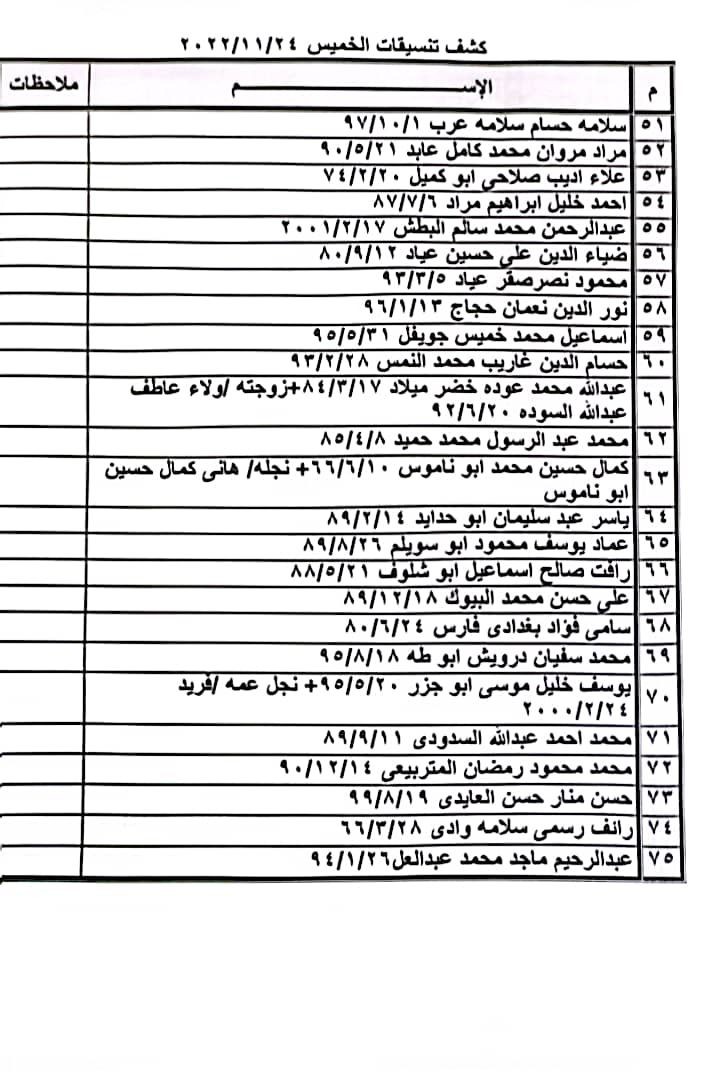 كشف تنسيقات الخميس ٢٠٢٢/١١/٢٤
م الإســـــــــــــــم ملاحظات
٥١ سلامه حسام سلامه عرب ٩٧/١٠/١
٥٢ مراد مروان محمد كامل عابد ٩٠/٥/٢١
٥٣ علاء اديب صلاحى ابو كميل ٧٤/٢/٢٠
٥٤ احمد خليل ابراهيم مراد ٨٧/٧/٦
٥٥ عبدالرحمن محمد سالم البطش ٢٠٠١/٢/١٧
٥٦ ضياء الدين على حسين عياد ٨٠/٩/١٢
٥٧ محمود نصرصقر عياد ٩٣/٣/٥
٥٨ نور الدين نعمان حجاج ٩٦/١/١٣
٥٩ اسماعيل محمد خميس جويفل ٩٥/٥/٣١
٦٠ حسام الدين غاريب محمد النمس ٩٣/٢/٢٨
٦١ عبدالله محمد عوده خضر ميلاد ٨٤/٣/١٧+زوجته /ولاء عاطف
عبدالله السوده ٩٢/٦/٢٠
٦٢ محمد عبد الرسول محمد حميد ٨٥/٤/٨
٦٣ كمال حسين محمد ابو ناموس ٦٦/٦/١٠+ نجله/ هانى كمال حسين
ابو ناموس
٦٤ ياسر عبد سليمان ابو حدايد ٨٩/٢/١٤
٦٥ عماد يوسف محمود ابو سويلم ٨٩/٨/٢٦
٦٦ رافت صالح اسماعيل ابو شلوف ٨٨/٥/٢١
٦٧ على حسن محمد البيوك ٨٩/١٢/١٨
٦٨ سامى فؤاد بغدادى فارس ٨٠/٦/٢٤
٦٩ محمد سفيان درويش ابو طه ٩٥/٨/١٨
٧٠ يوسف خليل موسى ابو جزر ٩٥/٥/٢٠+ نجل عمه /فريد
٢٠٠٠/٢/٢٤
٧١ محمد احمد عبدالله السدودى ٨٩/٩/١١
٧٢ محمد محمود رمضان المتربيعى ٩٠/١٢/١٤
٧٣ حسن منار حسن العايدى ٩٩/٨/١٩
٧٤ رانف رسمى سلامه وادى ٦٦/٣/٢٨
٧٥ عبدالرحيم ماجد محمد عبدالعل٩٤/١/٢٦